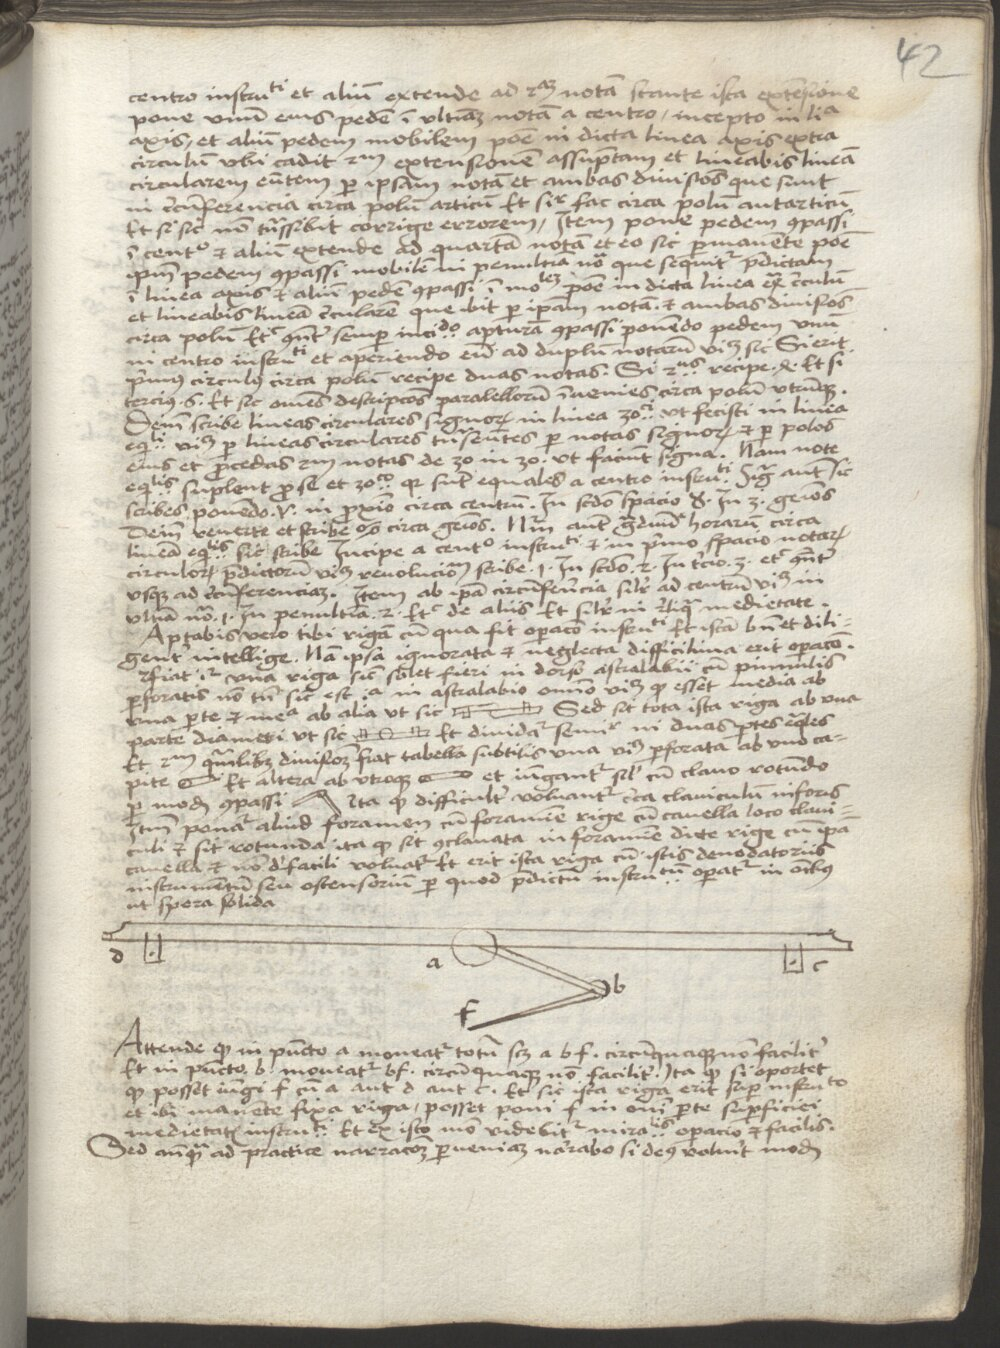 42
centro instruᵗⁱ et aliū extende ad 2ᵃᵐ notā stante ista extensione
pone vnū eius pedē ī vltīaȝ notā a centro, incepto in liᵃ
axis, et aliū pedem mobilem pōe in dicta linea axis extra
circulū vbi cadit 2m extensionē assūptam et lineabis lineā
circularem eūtem ꝑ ipsam notā et ambas diuisiōs que sunt
in cͥcūferencia circa polū articū Et siͬ fac circa polū antarticū
Et si sic nō trāssibit corrige errorem, Itēm pone pedem ꝯpassi
ī centº ⁊ aliū extende ad quartā notā et eo sic ꝑmanēte pōe
ipm̄ pedem ꝯpassi mobilē in penultīa nōᵃ que sequitͬ pͬdictam
ī linea axis ⁊ aliū pedē ꝯpassi pōe in dicta linea exͣ cͥculū
et lineabis lineā cͥcularē que ibit ꝑ ip̄am notā ⁊ ambas diuisiōs
circa polū Etͨ semꝑ apturā ꝯpassi ponēdo pedem vnū
in centro instruᵗⁱ et aperiendo eū ad duplū notarū viȝ sic Si erit
pͥmus circulus circa polū recipe duas notas. Si 2ᵘˢ recipe .4. Et si
tercius .6. Et sic omēs descripcōs paralellorū īuenies circa polū vtrūqȝ.
Dem̄ scribe lineas circulares signoꝝ in linea zoͨ. vt fecisti in linea
eqˡⁱ viȝ ꝑ lineas circulares trāseūtes ꝑ notas signoꝝ ⁊ ꝑ polos
eius et ꝓcedas 2m notas de 30 in 30. vt faciūt signa. Nam note
eqˡⁱˢ suplent ꝓ se et zoᶜº. qꝫ sūt equales a centro instruᵗⁱ. Sigᵃ autͣ sic
scribes ponēdo .♈. in pͬxīo circa centrū. In scd̄o spacio ♉. In 3. geīos
Dem̄ reuerte et scribe ♋ circa geīos. Nm̄ autͣ gͣduū horarū circa
lineā eqˡⁱˢ sic scribe Incipe a centº instruᵗⁱ ⁊ in pͥmo spacio notaꝝ
circuloꝝ pͬdictorū viȝ reuolucioȝ scribe .1. In scd̄o .2. In tͨio .3. etͨ
vsqȝ ad cͥcūferenciaȝ. Itēm ab ip̄a circūferēcia silͬ ad centrū viȝ in
vltīā nōᵃ .1. In penultīa .2. Etͨ de aliis Et silͬ in rͬliqͣ medietate.
Aptabis vero tibi rigā cū qua fit operacō instruᵗⁱ Et istā bn̄ et dili-
genͬ intellige. Nā ipsā ignorata ⁊ neglecta difficilima erit operacō.
Fiat iͬ vna riga sicͣ solet fieri in dorso astralabii cū pinnulis
ꝑforatis nō tn̄ sic est in astralabio omīno viȝ qꝫ esset media ab
vna ꝑte ⁊ meᵃ ab alia vt sic Sed sit tota ista riga ab vna
parte diametri vt sic Et diuidatͬ in duas ꝑtes eqͣles
Et 2m quālibȝ diuisionē fiat tabella subtilis vna viȝ ꝑforata ab vno ca-
pite Et altera ab vtroqȝ et iūgantͬ silͬ cū clauo rotūdo
ꝑ modū ꝯpassi Ita qꝫ difficultͬ voluantͬ cͥca clauiculū inforis
Itm̄ ponatͬ aliud foramen cū foramīe rige cū cauella loco claui-
culi ⁊ sit rotunda ita qꝫ sit ꝯclauata in foramīe dicte rige cū ip̄a
cauella ⁊ nō dͤ facili voluatͬ Et erit ista riga cū istis denodatoriis
instrumētū seu ostensoriū ꝑ quod pͬdictū instruᵗᵘ̄ operatͬ in oībus
ut spera solida
d a b c f
Attende qꝫ in pūcto a moueatͬ totū scȝ a b f. circūquaqȝ nō facilitͬ
Et in pūcto b. moueatͬ bf. circūquaqȝ nō facilitͬ. Ita qꝫ si oportet
qꝫ posset iūgi f cū a aut d aut c. Et sic ista riga erit suꝑ instruto
et ibi manēte fixa riga, posset poni f in oīni ꝑte suꝑficiei
medietatꝭ instruᵗⁱ. Et ex isto mō videbitͬ miraˡⁱˢ opacio ⁊ facilis.
Sed anqͣ ad practice narracōȝ ꝑueniaȝ narrabo si deꝰ voluit modū